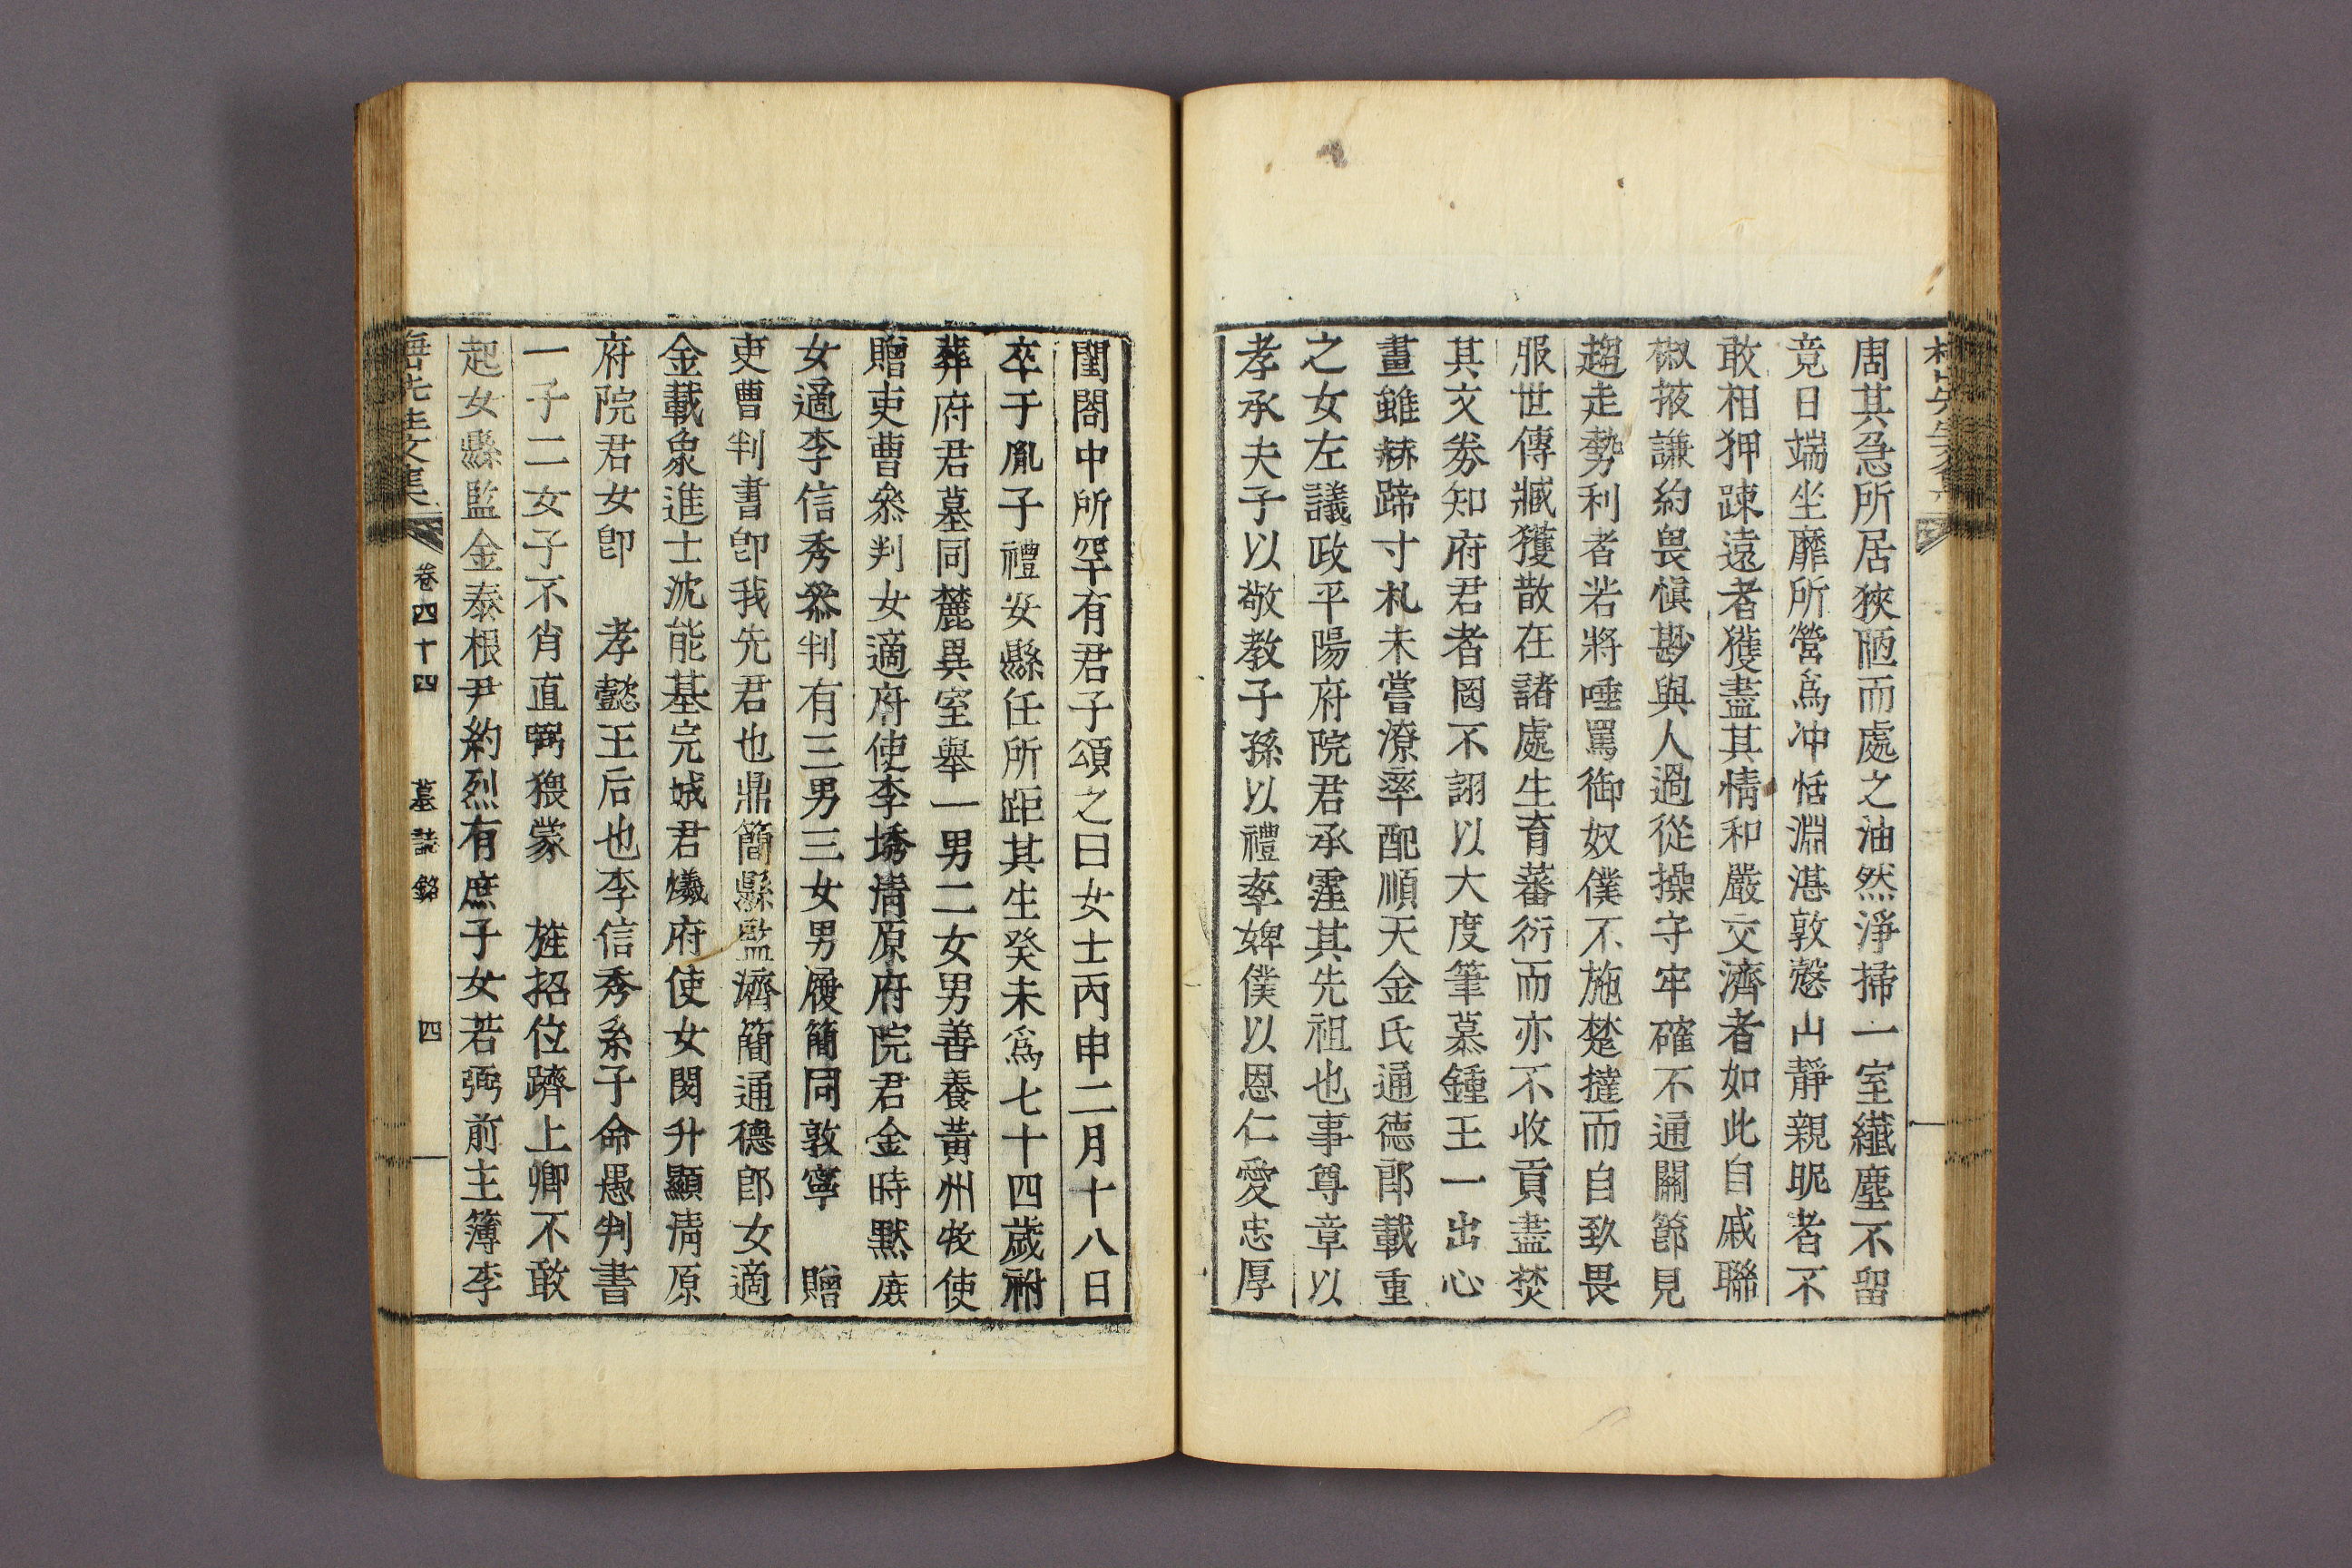 周其急所居狹陋而處之油然淨掃一室纖塵不留
竟日端坐靡所營爲冲恬淵湛敦慤山靜親昵者不
敢相狎踈遠者獲盡其情和嚴交濟者如此自戚聯
椒掖謙約畏愼尠與人過從操守牢確不通關節見
趨走勢利者若將唾罵御奴僕不施楚撻而自致畏
服世傳臧獲散在諸處生育蕃衍而亦不收貢盡焚
其文劵知府君者罔不詡以大度筆慕鍾王一出心
畫雖赫蹄寸札未嘗潦率配順天金氏通德郞載重
之女左議政平陽府院君承霔其先祖也事尊章以
孝承夫子以敬敎子孫以禮率婢僕以恩仁愛忠厚
閨閤中所罕有君子頌之曰女士丙申二月十八日
卒于胤子禮安縣任所距其生癸未爲七十四歲祔
葬府君墓同麓異室擧一男二女男善養黃州牧使
贈吏曹參判女適府使李𡏇淸原府院君金時默庶
女適李信秀參判有三男三女男履簡同敦寧 贈
吏曹判書卽我先君也鼎簡縣監濟簡通德郞女適
金載象進士沈能基完城君爔府使女閔升顯淸原
府院君女卽 孝懿王后也李信秀系子命愚判書
一子二女子不肖直弼猥蒙 旌招位躋上卿不敢
起女縣監金泰根尹約烈有庶子女若弼前主簿李
卷四十四 墓誌銘 四